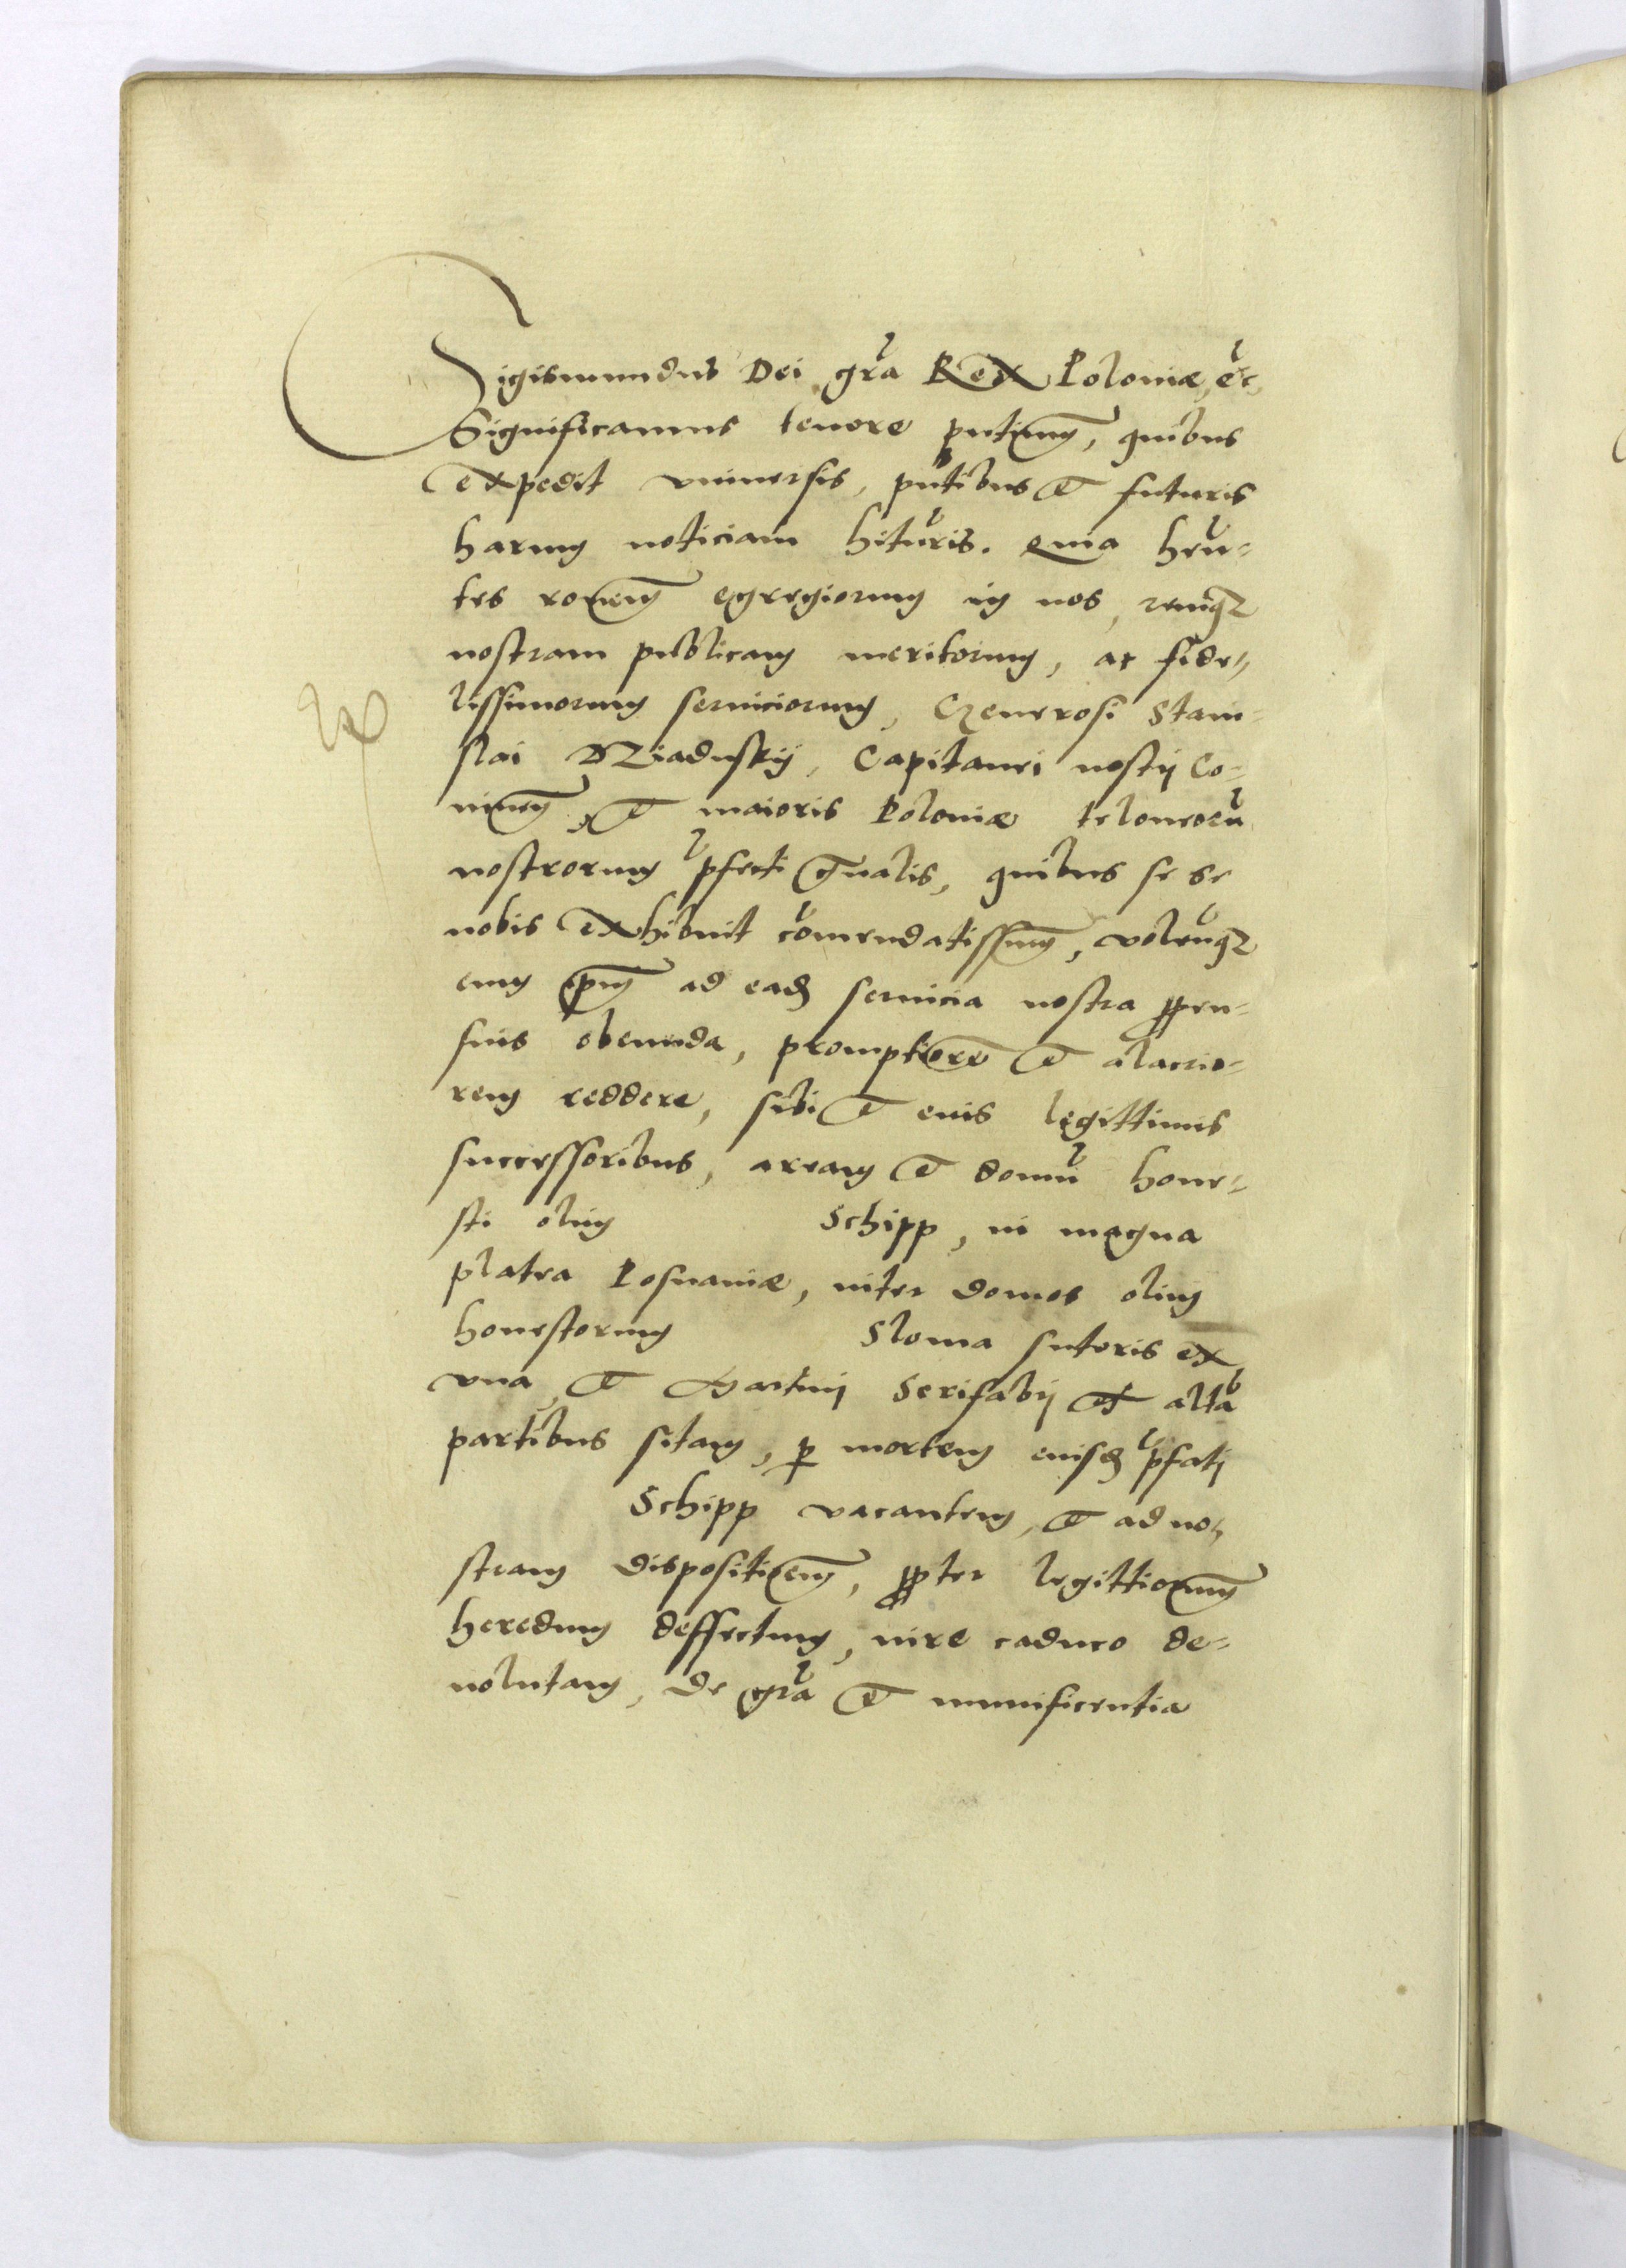 Sigismundus Dei gra Rex Poloniæ, etc
Significamus tenore pntium, quibus
expedit vniuersis, pntibus et futuris
harum noticiam hituris. Quia hen-
tes ronem egregiorum in nos, remque
nostram publicam meritorum, ac fide-
lissimorum seruiciorum, Generosi Stani-
slai Capitanei nostri Co-
ninen, et maioris Poloniæ teloneoru
nostrorum pfecti gnalis, quibus se se
nobis exhibuit comendatissimum, volenque
eum ipsum ad eadem seruicia nostra propen-
sius obeunda, promptiore et alacrio-
rem reddere, sibi et eius legittimis
successoribus, aream et domu hone-
sti olim Schipp, in magna
platea Posnaniæ, inter domos olim
honestorum Sloma sutoris ex
vna, et Martini Serifabri ex alta
partibus sitam, per mortem eiusdem pfati
Schipp vacantem, et ad no-
stram dispositionem, propter legittimorum
heredum deffectum, iure caduco de-
uolutam, de gra et munificentia